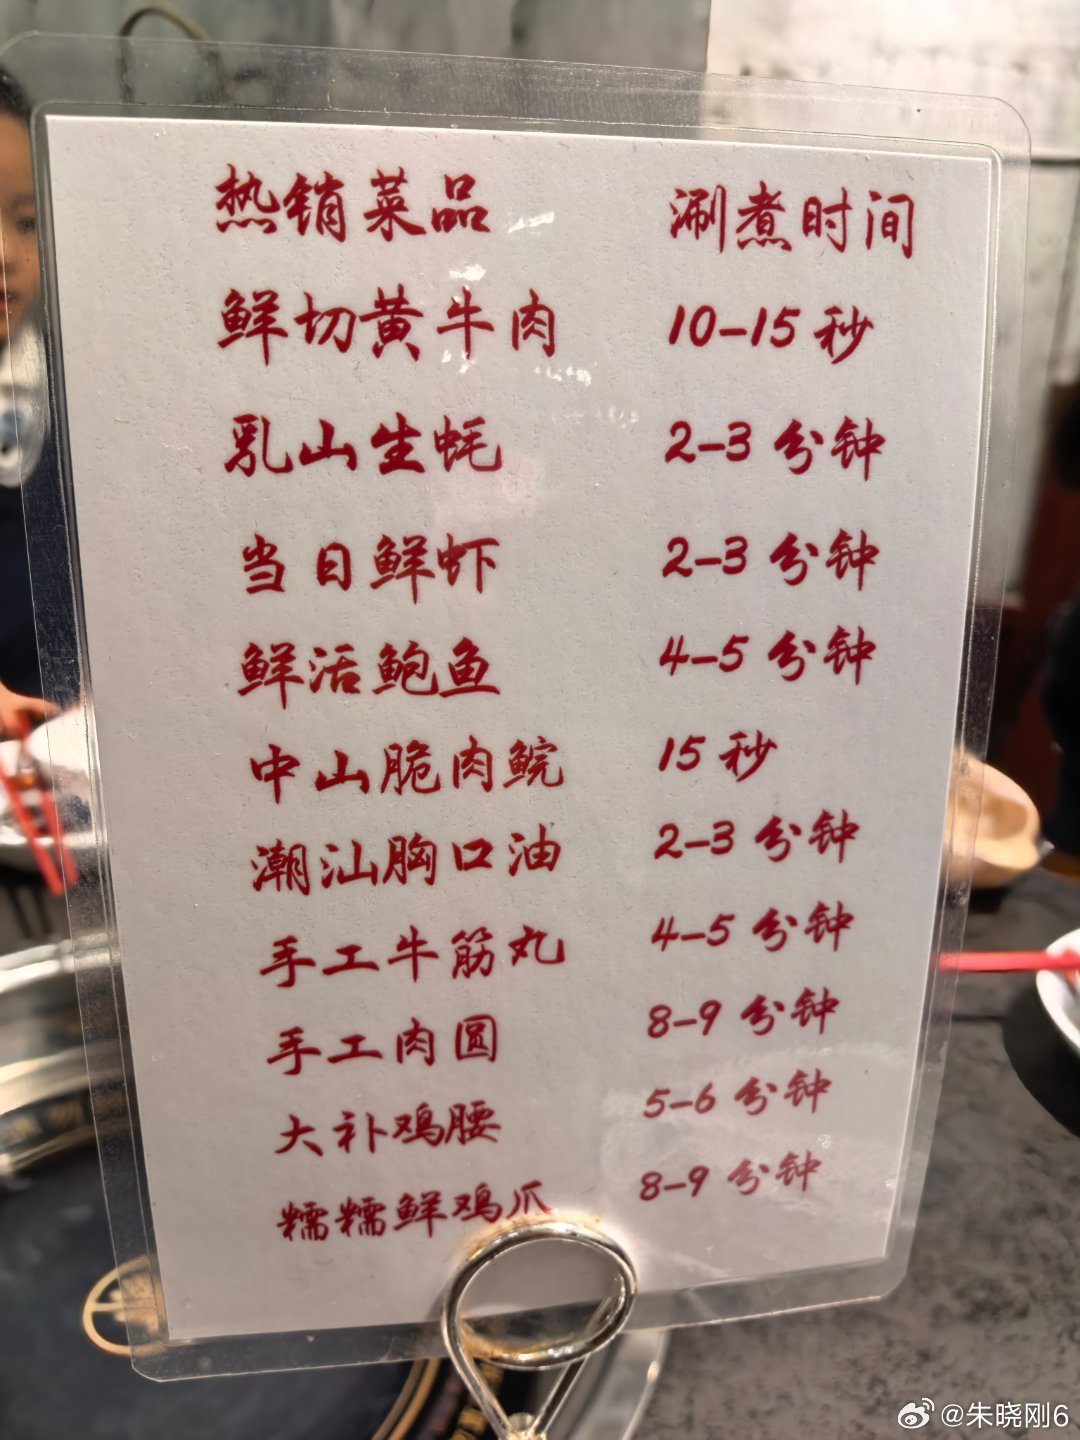 热销菜品 涮煮时间
鲜切黄牛肉 10-15 秒
乳山生蚝 2-3 分钟
当日鲜虾 2-3 分钟
鲜活鲍鱼 4-5 分钟
中山脆肉鲩 15 秒
潮汕胸口油 2-3 分钟
手工牛筋丸 4-5 分钟
手工肉圆 8-9 分钟
大补鸡腰 5-6 分钟
糯糯鲜鸡爪 8-9 分钟
@朱晓刚6